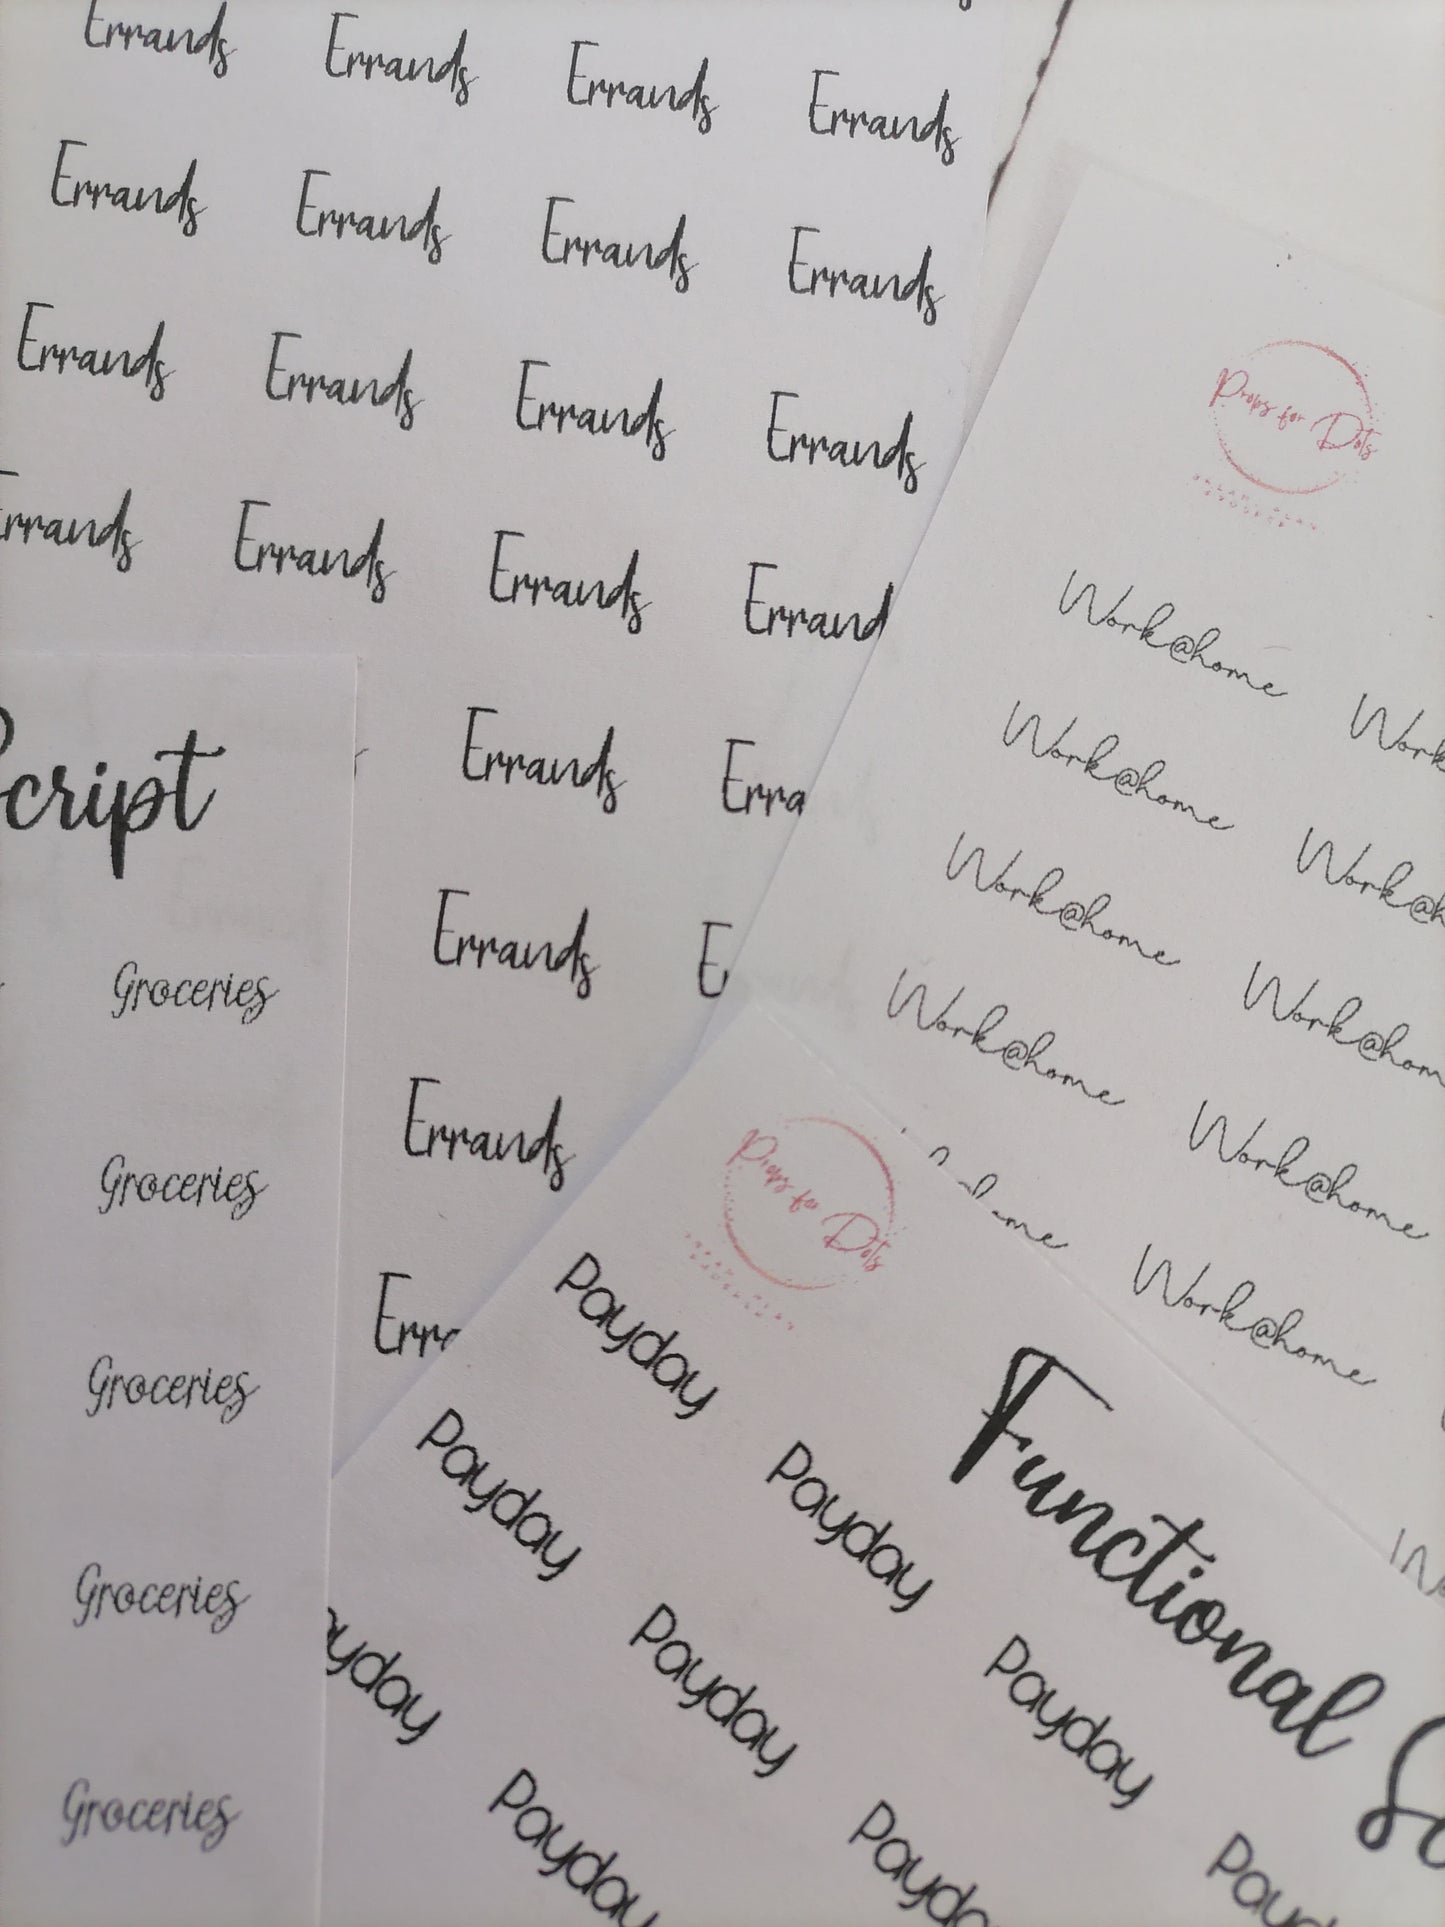 Errands Errands Errands Errands
Errands Errands Errands Errands
Errands Errands Errands Errands
Errands Errands Errands Errand
Errands Erra
Errands E
Errands
Erra
Props for Dots
Work@home
Work@home Work
Work@home Work@h
Work@home Work@hom
Work@home
ome Work@home
Script
Groceries
Groceries
Groceries
Groceries
Groceries
Props for Dots
Functional S
Payday
Payday Payday
ayday Payday Payday
Payday Payday Payday